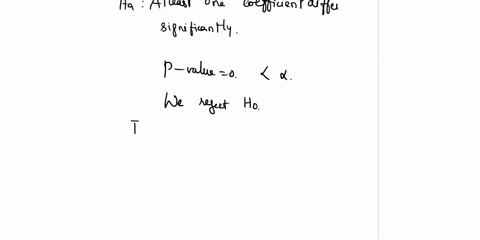 Ha : Atleast one coefficient differ
significantly.
P-value = 0. < α.
We reject H0.
T